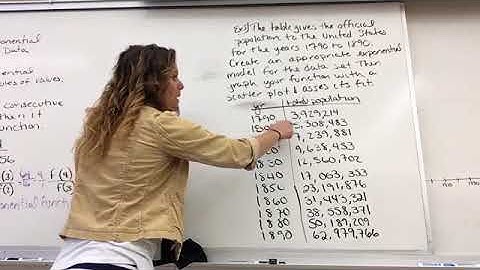 ponential
Data
ules of values.
consecutive
then it
function
256
f(4)
f(3)
ponential function
Ex 3) The table gives the official
population to The United States
for the years 1790 to 1890.
Create an appropriate exponential
model for the data set. Then
graph your function with a
scatter plot & asses its fit.
yr total population
1790 3,929,214
308,483
239,881
9,638,453
12,860,702
1840 17,063,333
1850 23,191,876
1860 31,443,321
1870 38,558,371
1880 50,189,209
1890 62,979,766